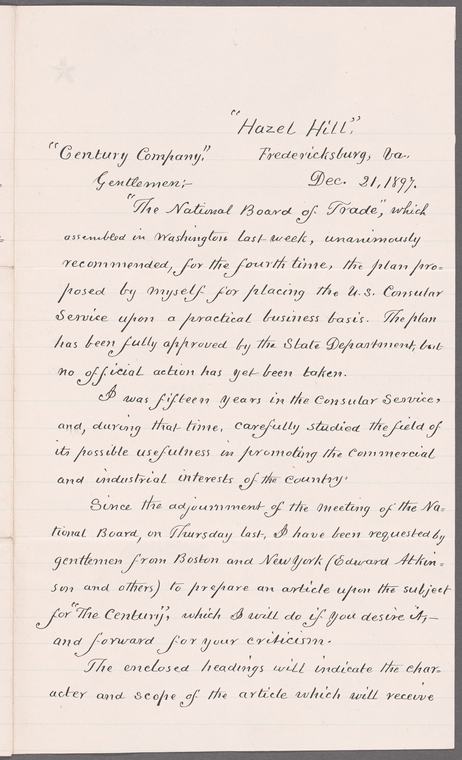 "Hazel Hill",
"Century Company," Fredericksburg, Va.
Gentlemen:- Dec. 21, 1897.
"The National Board of Trade", which
assembled in Washington last week, unanimously
recommended, for the fourth time, the plan pro=
posed by myself for placing the U.S. Consular
Service upon a practical business basis. The plan
has been fully approved by the State Department, but
no official action has yet been taken.
I was fifteen years in the Consular Service,
and, during that time, carefully studied the field of
its possible usefulness in promoting the commercial
and industrial interests of the country.
Since the adjournment of the meeting of the Na=
tional Board, on Thursday last, I have been requested by
gentlemen from Boston and New York (Edward Atkin=
son and others) to prepare an article upon the subject
for "The Century", which I will do if you desire it,—
and forward for your criticism.
The enclosed headings will indicate the char=
acter and scope of the article which will receive